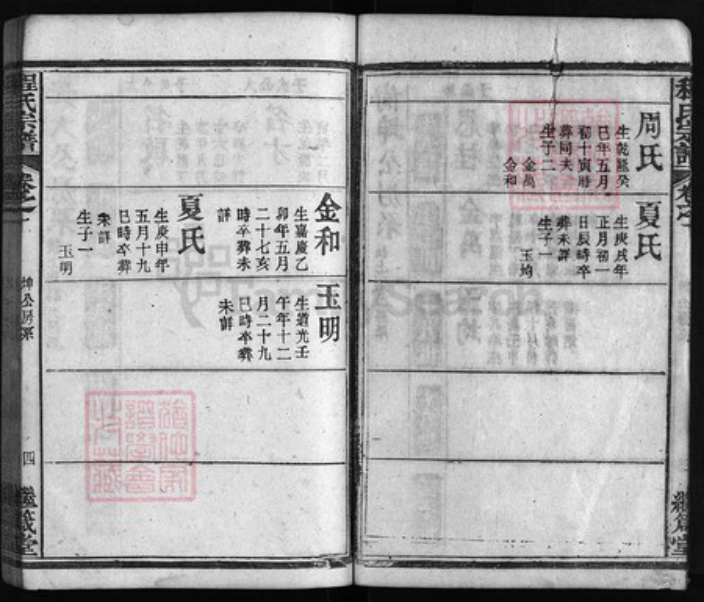 周氏
生乾隆癸
巳年五月
初十寅時
葬同夫
生子二
金萬
金和
夏氏
生庚戌年
正月初一
日辰時卒
葬未詳
生子一
玉均
繼箴堂
金和
生嘉慶乙
卯年五月
二十七亥
時卒葬未
詳
夏氏
生庚申年
五月十九
巳時卒葬
未詳
生子一
玉明
玉明
生道光壬
午年十二
月二十九
巳時卒葬
未詳
程氏宗譜
坤公房系
四
繼箴堂